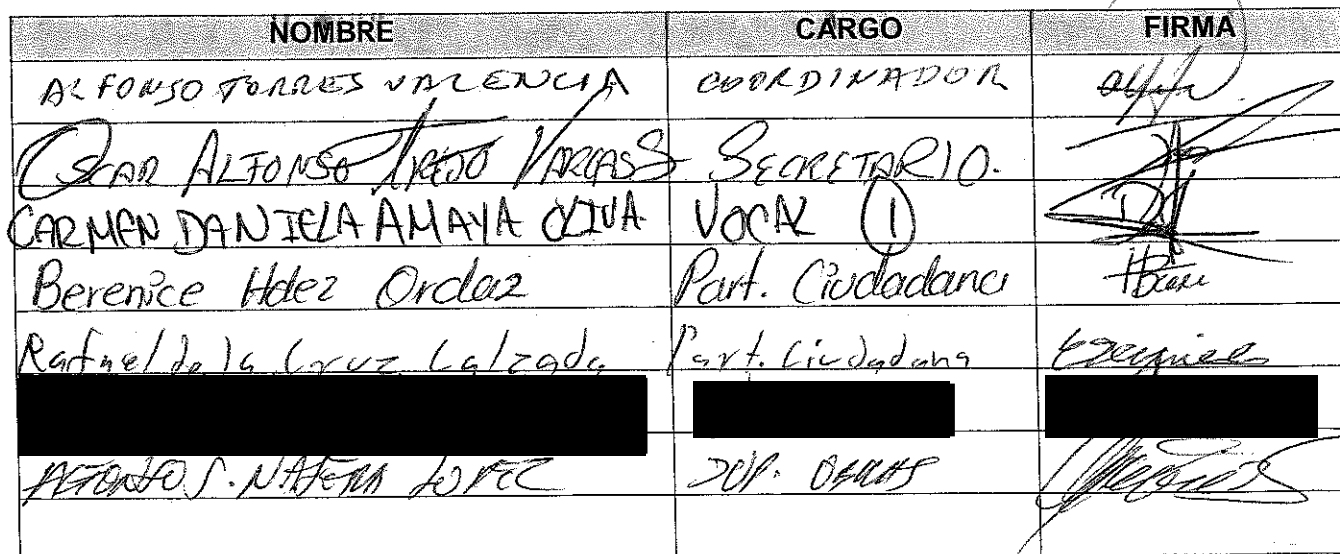 NOMBRE CARGO FIRMA
ALFONSO TORRES VALENCIA COORDINADOR
OSCAR ALFONSO TREJO VARGAS SECRETARIO.
CARMEN DANIELA AMAYA OLIVA VOCAL 1
Berenice Hdez Ordaz Part. Ciudadana
Rafael de la Cruz Calzada Part. Ciudadana
ALFONSO S. NAJERA LOPEZ OBRAS